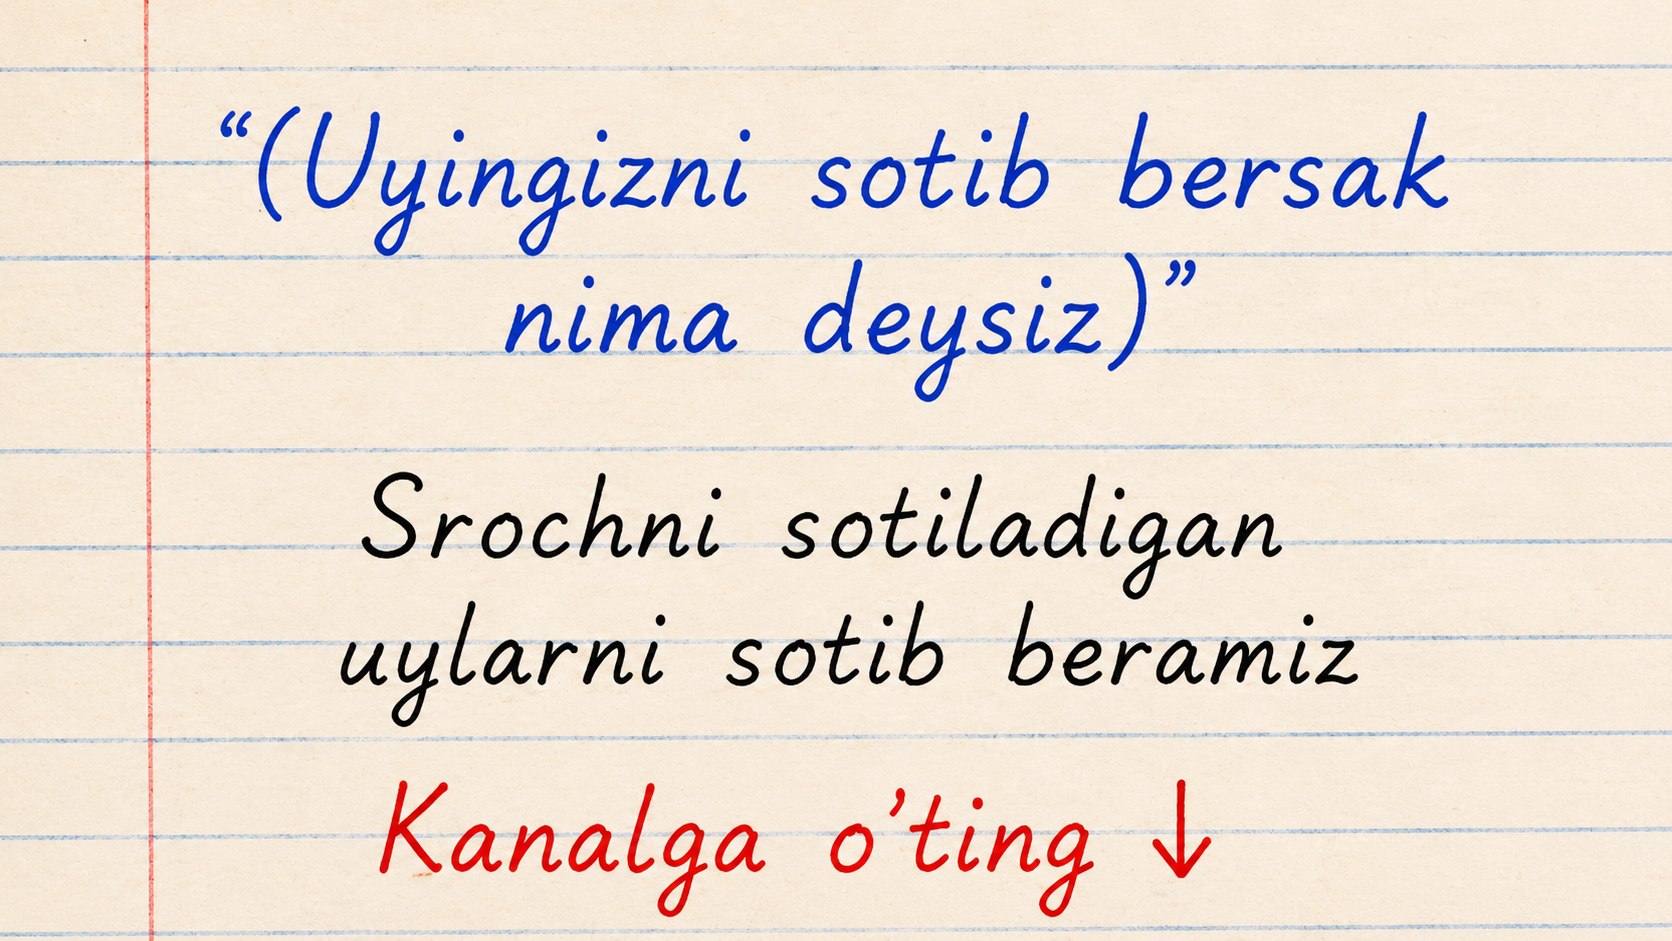 “(Uyingizni sotib bersak
nima deysiz)”
Srochni sotiladigan
uylarni sotib beramiz
Kanalga o’ting ↓